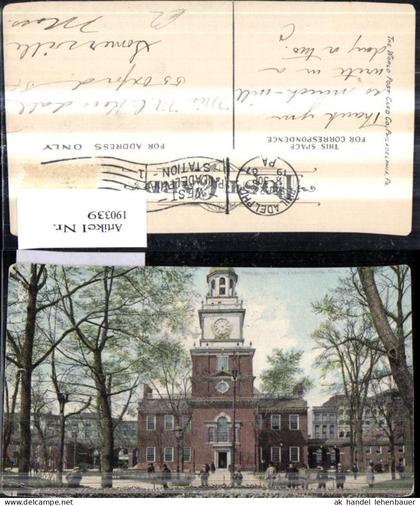 THE WORLD POST CARD CO. PHILADELPHIA, PA.
THIS SPACE
FOR CORRESPONDENCE.
Thank you
so much - will
write in a
day or two.
FOR ADDRESS ONLY
Miss M. C. Kendall
55 Oxford St
Somerville
Mass.
PHILADELPHIA
PA
WEST
PHILADELPHIA
STATION
1
Artikel Nr.
190339
www.delcampe.net
ak handel lehenbauer